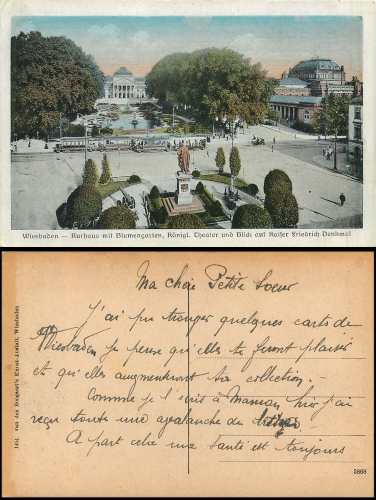 Wiesbaden — Kurhaus mit Blumengarten, Königl. Theater und Blick auf Kaiser Friedrich-Denkmal
Ma chèr Petite Soeur
J'ai pu trouver quelques cartes de
Wiesbaden je pense qu'elles te feront plaisir
et qu'elles augmenteront ta collection.
Comme je l'écris à Maman hier j'ai
reçu toute une avalanche de lettres
A part cela ma santé est toujours
Jehl. van den Boogaart's Kunst-Anstalt, Wiesbaden
3868